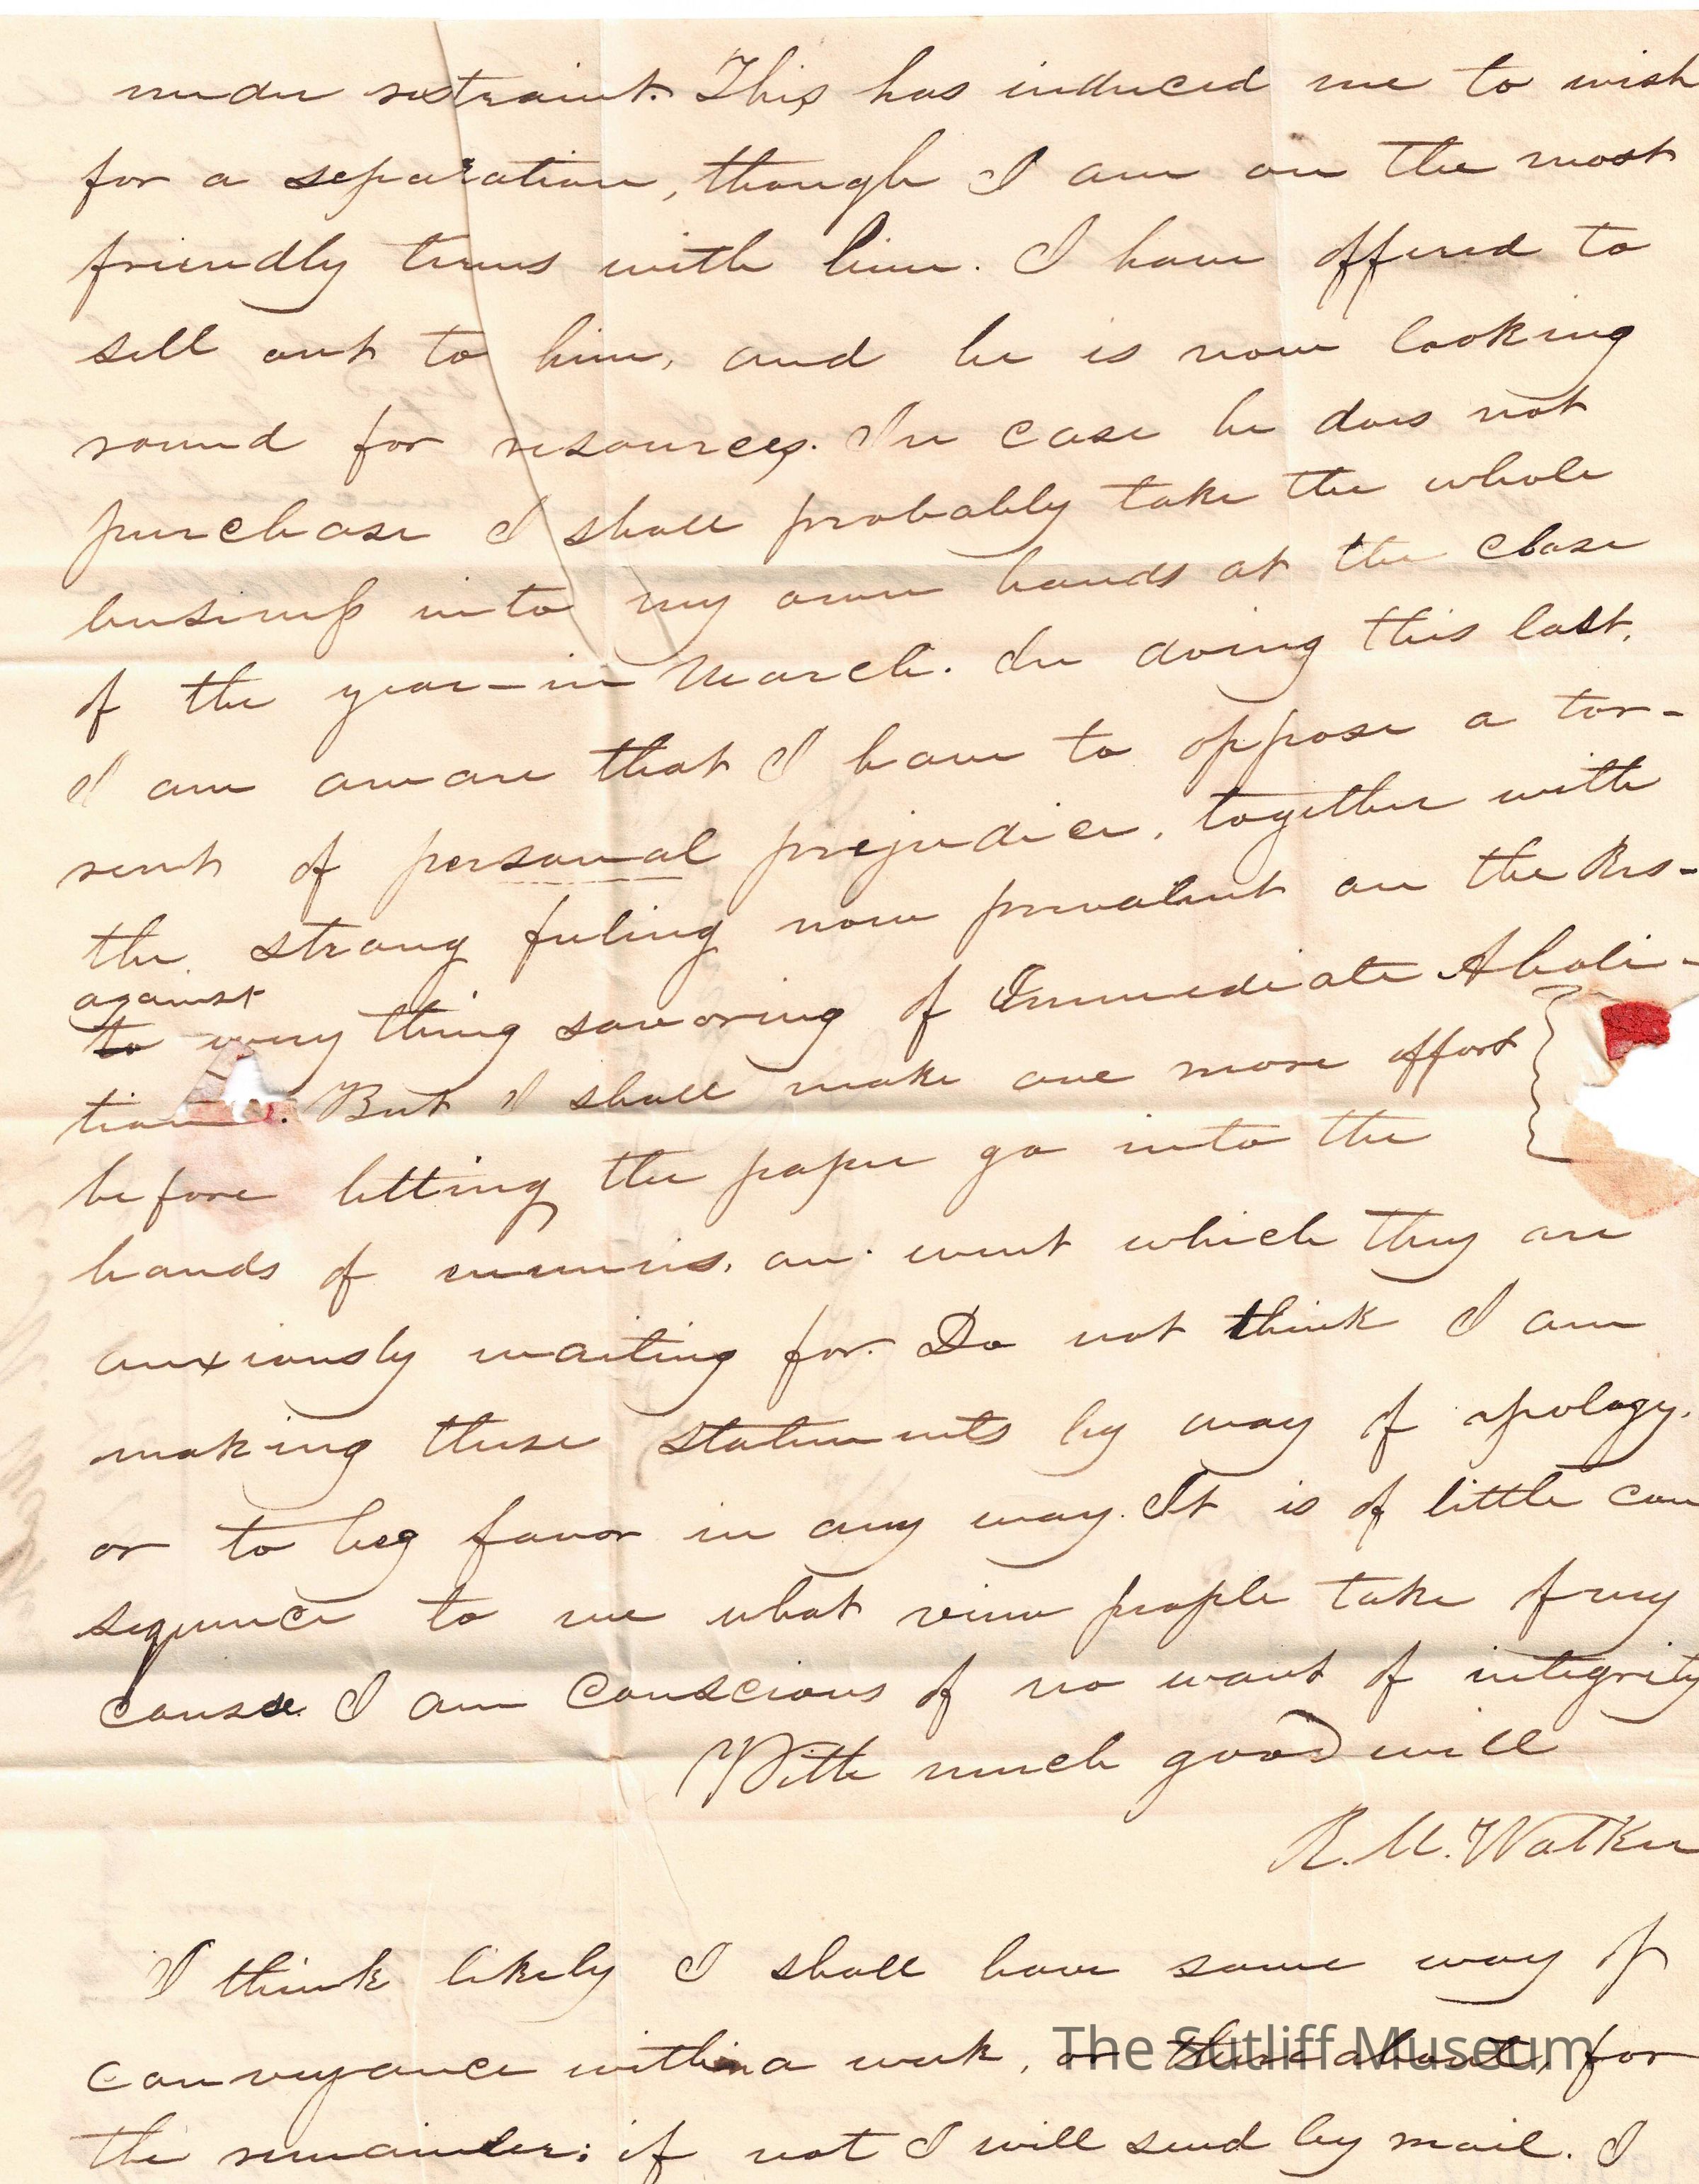 under restraint. This has induced me to wish
for a separation, though I am on the most
friendly terms with him. I have offered to
sell out to him, and he is now looking
round for resources. In case he does not
purchase I shall probably take the whole
business into my own hands at the close
of the year—in March. In doing this last,
I am aware that I have to oppose a tor-
rent of personal prejudice, together with
the strong feeling now prevalent on the Res-
against
to every thing savoring of Immediate Aboli-
tion. But I shall make one more effort
before letting the paper go into the
hands of enemies, an event which they are
anxiously waiting for. Do not think I am
making these statements by way of apology,
or to beg favor in any way. It is of little con
sequence to me what view people take of my
cause. I am conscious of no want of integrity
With much good will
R. M. Walker
I think likely I shall have some way of
conveyance within a week, or thereabout, for
the remainder: if not I will send by mail. I
The Sutliff Museum